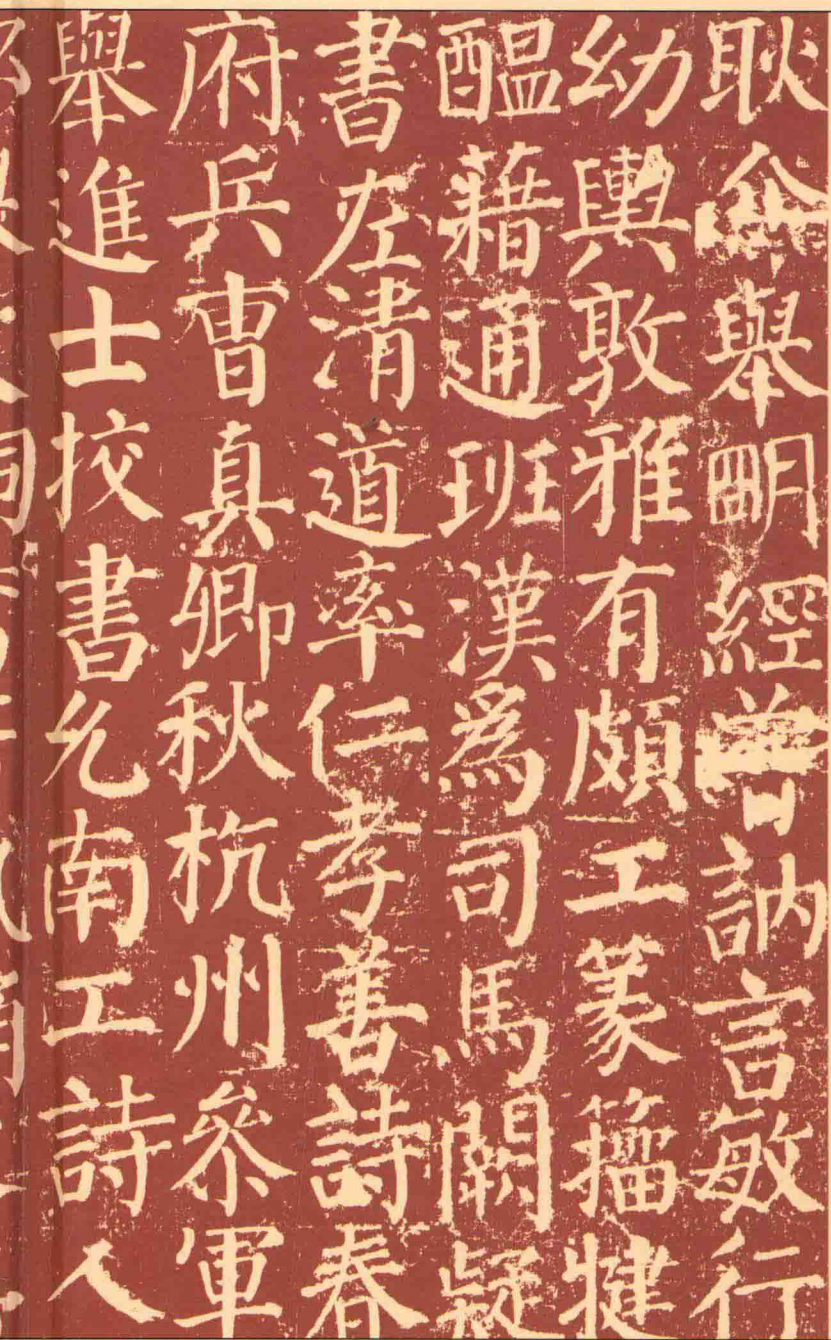 耿介舉明經曾訥言敏行
幼輿敦雅有頗工篆籀犍
醖藉通班漢爲司馬闕疑
書左清道率仁孝善詩春
府兵曹真卿秋杭州參軍
舉進士挍書允南工詩人